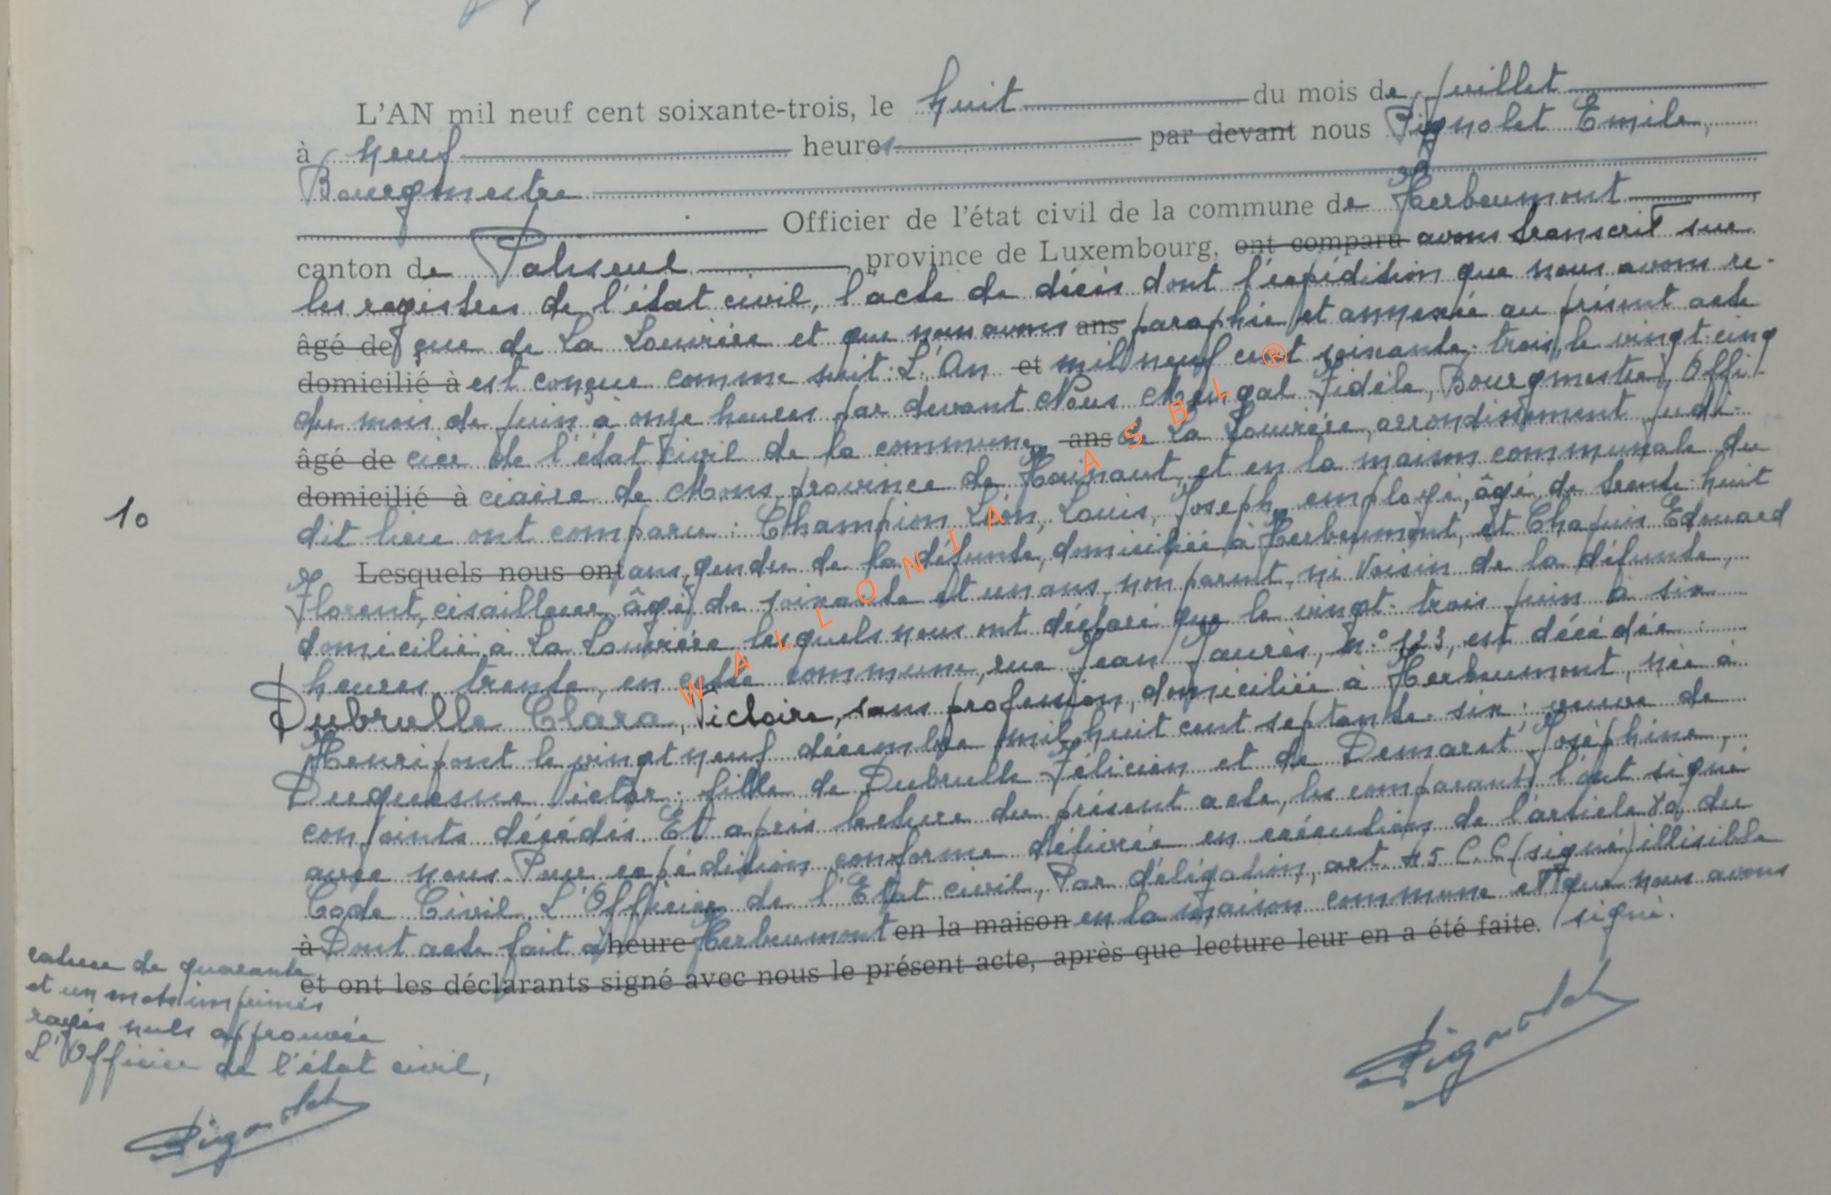 L'AN mil neuf cent soixante-trois, le huit du mois de juillet
à neuf heures par devant nous Pignolet Emile,
Bourgmestre
Officier de l'état civil de la commune de Herbeumont
canton de Paliseul province de Luxembourg, ont comparu avons transcrit sur
les registres de l'état civil, l'acte de décès dont l'expédition que nous avons re-
âgé de çue de La Louvière et que nous avons ans paraphée et annexée au présent acte
domicilié à est conçue comme suit: L'An et mil neuf cent soixante-trois, le vingt-cinq
du mois de juin à onze heures par devant Nous Mengal Fidèle, Bourgmestre, Offi-
âgé de cier de l'état civil de la commune ans de La Louvière, arrondissement judi-
domicilié à ciaire de Mons, province de Hainaut, et en la maison communale du
10
dit lieu ont comparu: Champion Léon, Louis, Joseph, employé, âgé de trente-huit
Lesquels nous ont ans, gendre de la défunte, domicilié à Herbeumont, et Chapuis Edouard
Florent, cisailleur, âgé de soixante et un ans, non parent, ni voisin de la défunte,
domicilié à La Louvière lesquels nous ont déclaré que le vingt-trois juin à six
heures trente, en cette commune, rue Jean Jaurès, N° 123, est décédée:
Dubrulle Clara, Victoire, sans profession, domiciliée à Herbeumont, née à
Henripont le vingt neuf décembre mil huit cent septante-six; veuve de
Duquesne Victor; fille de Dubrulle Félicien et de Demaret Joséphine,
conjoints décédés. Et après lecture du présent acte, les comparants l'ont signé
avec nous. Pour expédition conforme délivrée en exécution de l'article 80 du
Code Civil. L'Officier de l'Etat civil, Par délégation, art. 45 C.C. (signé) illisible
à Dont acte fait à heure Herbeumont en la maison en la maison commune et que nous avons
et ont les déclarants signé avec nous le présent acte, après que lecture leur en a été faite. signé.
rature de quarante
et un mots imprimés
rayés nuls approuvée
L'Officier de l'état civil,
Pignolet
Pignolet
WALLONIA ASBL ®